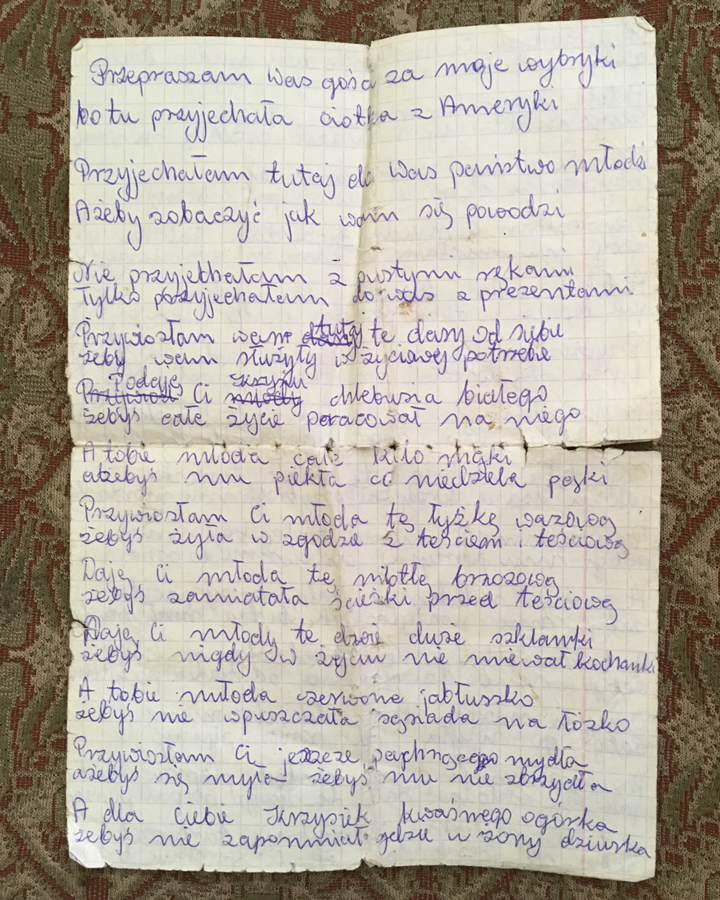 Przepraszam was gości za moje wybryki
bo tu przyjechała ciotka z Ameryki
Przyjechałam tutaj do was państwo młodzi
Ażeby zobaczyć jak wam się powodzi
Nie przyjechałam z pustymi rękami
tylko przyjechałam do was z prezentami
Przywiozłam wam tutaj te dary od siebie
żeby wam służyły w życiowej potrzebie
Podaję Ci Krzysiu chlebusia białego
żebyś całe życie pracował na niego
A tobie młoda całe kilo mąki
ażebyś mu piekła co niedziela pączki
Przywiozłam Ci młoda tę łyżkę wazową
żebyś żyła w zgodzie z teściem i teściową
Daję Ci młoda tę miotłę brzozową
żebyś zamiatała ścieżki przed teściową
Daję Ci młody te dwie duże szklanki
żebyś nigdy w życiu nie miewał kochanki
A tobie młoda czerwone jabłuszko
żebyś nie wpuszczała sąsiada na łóżko
Przywiozłam Ci jeszcze pachnącego mydła
ażebyś się myła żebyś mu nie zbrzydła
A dla ciebie Krzysiek kwaśnego ogórka
żebyś nie zapomniał gdzie u żony dziurka